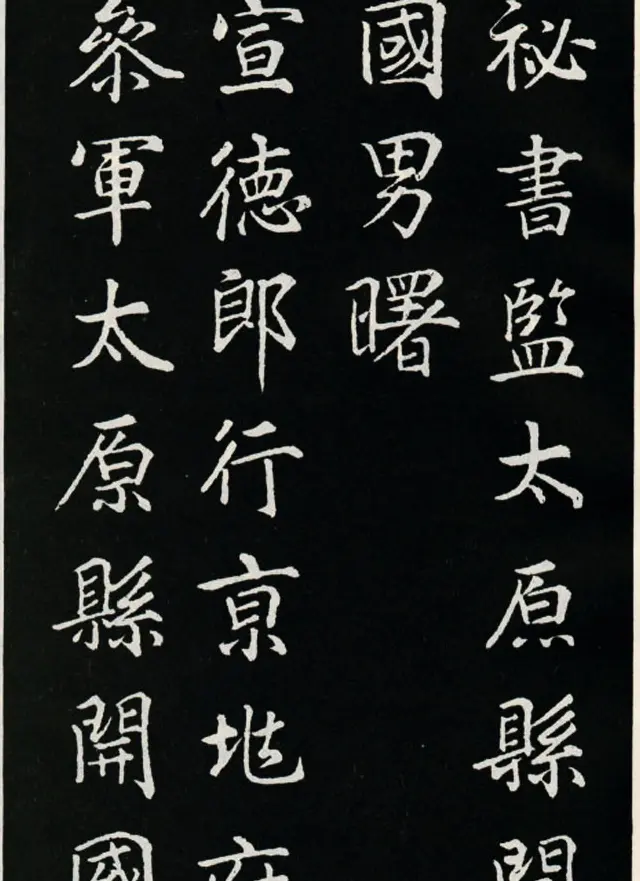 祕書監太原縣開
國男曙
宣徳郎行亰兆府
參軍太原縣開國